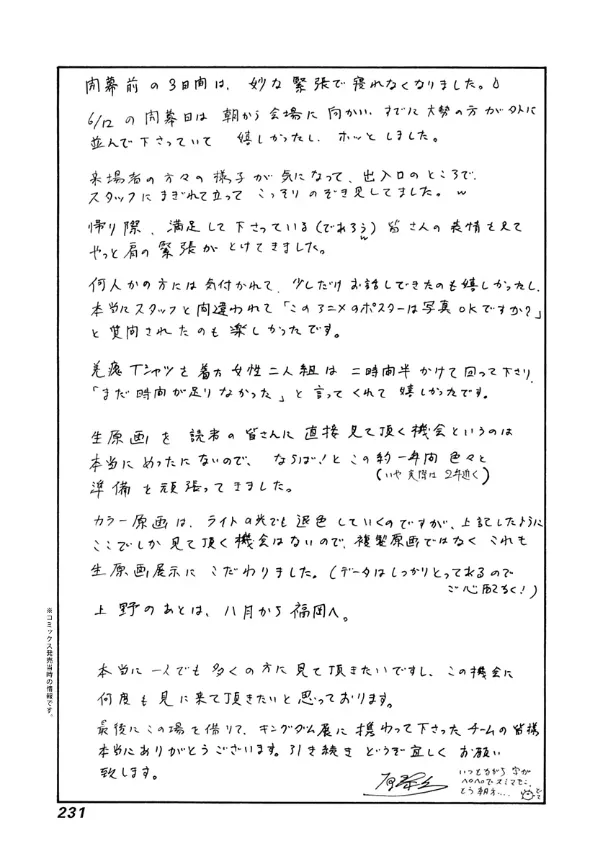 開幕前の3日間は、妙な緊張で寝れなくなりました。
6/12の開幕日は朝から会場に向かい、すでに大勢の方が外に
並んで下さっていて 嬉しかったし、ホッとしました。
来場者の方々の様子が気になって、出入口のところで、
スタッフにまぎれて立って こっそりのぞき見してました。w
帰り際、満足して下さっている(であろうw)皆さんの表情を見て
やっと肩の緊張がとけてきました。
何人かの方には気付かれて、少しだけお話しできたのも嬉しかったし、
本当にスタッフと間違われて「このアニメのポスターは写真OKですか?」
と質問されたのも楽しかったです。
羌瘣Tシャツを着た女性二人組は 二時間半かけて回って下さり、
「まだ時間が足りなかった」と言ってくれて 嬉しかったです。
生原画を 読者の皆さんに直接見て頂く機会というのは
本当にめったにないので、ならば!とこの約一年間色々と
(いや実際は2年近く)
準備を頑張ってきました。
カラー原画は、ライトの光でも退色していくのですが、上記したように
ここでしか見て頂く機会はないので、複製原画ではなく これも
生原画展示に こだわりました。(データはしっかりとってあるので
ご心配なく!)
上野のあとは、八月から福岡へ。
本当に一人でも多くの方に見て頂きたいですし、この機会に
何度も見に来て頂きたいと思っております。
最後にこの場を借りて、キングダム展に携わって下さったチームの皆様
本当にありがとうございます。引き続き どうぞ宜しくお願い
致します。
いつもながら 字が
ヘロヘロでスミマセン、
もう朝方…
※コミックス発売当時の情報です。
231